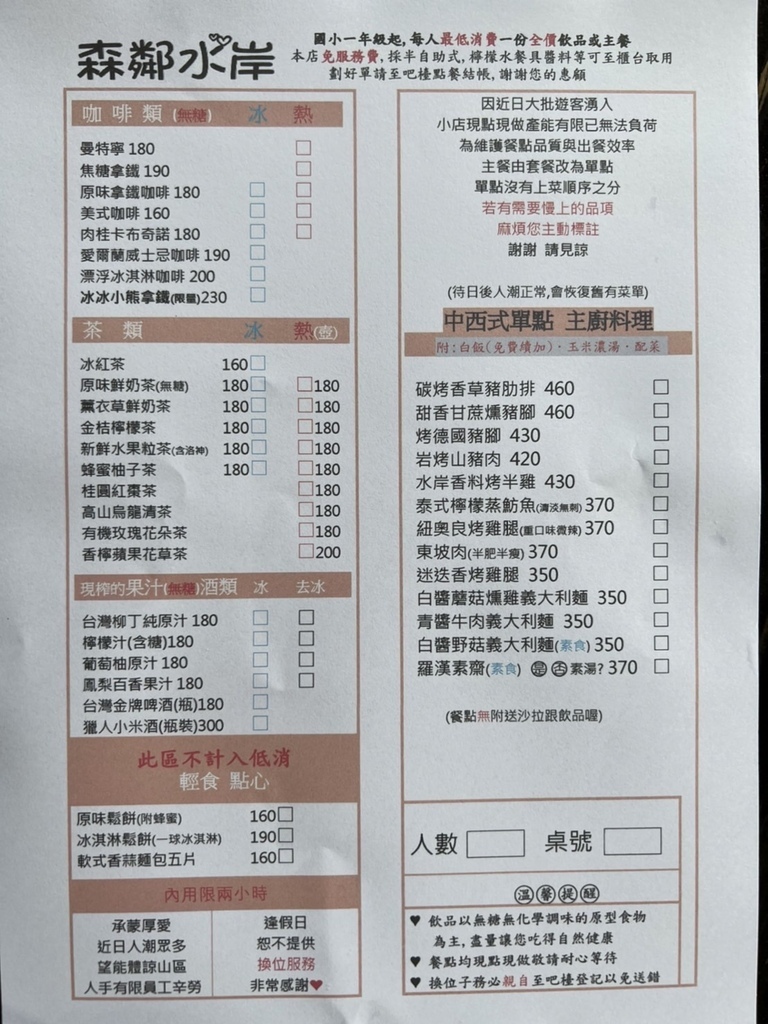 森鄰水岸
國小一年級起,每人最低消費一份全價飲品或主餐
本店免服務費,採半自助式,檸檬水餐具醬料等可至櫃台取用
劃好單請至吧檯點餐結帳,謝謝您的惠顧
咖啡類(無糖) 冰 熱
曼特寧 180 □
焦糖拿鐵 190 □
原味拿鐵咖啡 180 □ □
美式咖啡 160 □ □
肉桂卡布奇諾 180 □ □
愛爾蘭威士忌咖啡 190 □
漂浮冰淇淋咖啡 200 □
冰冰小熊拿鐵(限量)230 □
茶類 冰 熱(壺)
冰紅茶 160□
原味鮮奶茶(無糖) 180□ □180
薰衣草鮮奶茶 180□ □180
金桔檸檬茶 180□ □180
新鮮水果粒茶(含洛神) 180□ □180
蜂蜜柚子茶 180□ □180
桂圓紅棗茶 □180
高山烏龍清茶 □180
有機玫瑰花朵茶 □180
香檸蘋果花草茶 □200
現榨的果汁(無糖)酒類 冰 去冰
台灣柳丁純原汁 180 □ □
檸檬汁(含糖)180 □ □
葡萄柚原汁 180 □ □
鳳梨百香果汁 180 □ □
台灣金牌啤酒(瓶)180 □
獵人小米酒(瓶裝)300 □
此區不計入低消
輕食 點心
原味鬆餅(附蜂蜜) 160□
冰淇淋鬆餅(一球冰淇淋) 190□
軟式香蒜麵包五片 160□
內用限兩小時
承蒙厚愛
近日人潮眾多
望能體諒山區
人手有限員工辛勞
逢假日
恕不提供
換位服務
非常感謝♥
因近日大批遊客湧入
小店現點現做產能有限已無法負荷
為維護餐點品質與出餐效率
主餐由套餐改為單點
單點沒有上菜順序之分
若有需要慢上的品項
麻煩您主動標註
謝謝 請見諒
(待日後人潮正常,會恢復舊有菜單)
中西式單點 主廚料理
附:白飯(免費續加)·玉米濃湯·配菜
碳烤香草豬肋排 460 □
甜香甘蔗燻豬腳 460 □
烤德國豬腳 430 □
岩烤山豬肉 420 □
水岸香料烤半雞 430 □
泰式檸檬蒸魴魚(清淡無刺) 370 □
紐奧良烤雞腿(重口味微辣) 370 □
東坡肉(半肥半瘦) 370 □
迷迭香烤雞腿 350 □
白醬蘑菇燻雞義大利麵 350 □
青醬牛肉義大利麵 350 □
白醬野菇義大利麵(素食) 350 □
羅漢素齋(素食) 是 否 素湯? 370 □
(餐點無附送沙拉跟飲品喔)
人數 桌號
溫馨提醒
♥ 飲品以無糖無化學調味的原型食物
為主,盡量讓您吃得自然健康
♥ 餐點均現點現做敬請耐心等待
♥ 換位子務必親自至吧檯登記以免送錯